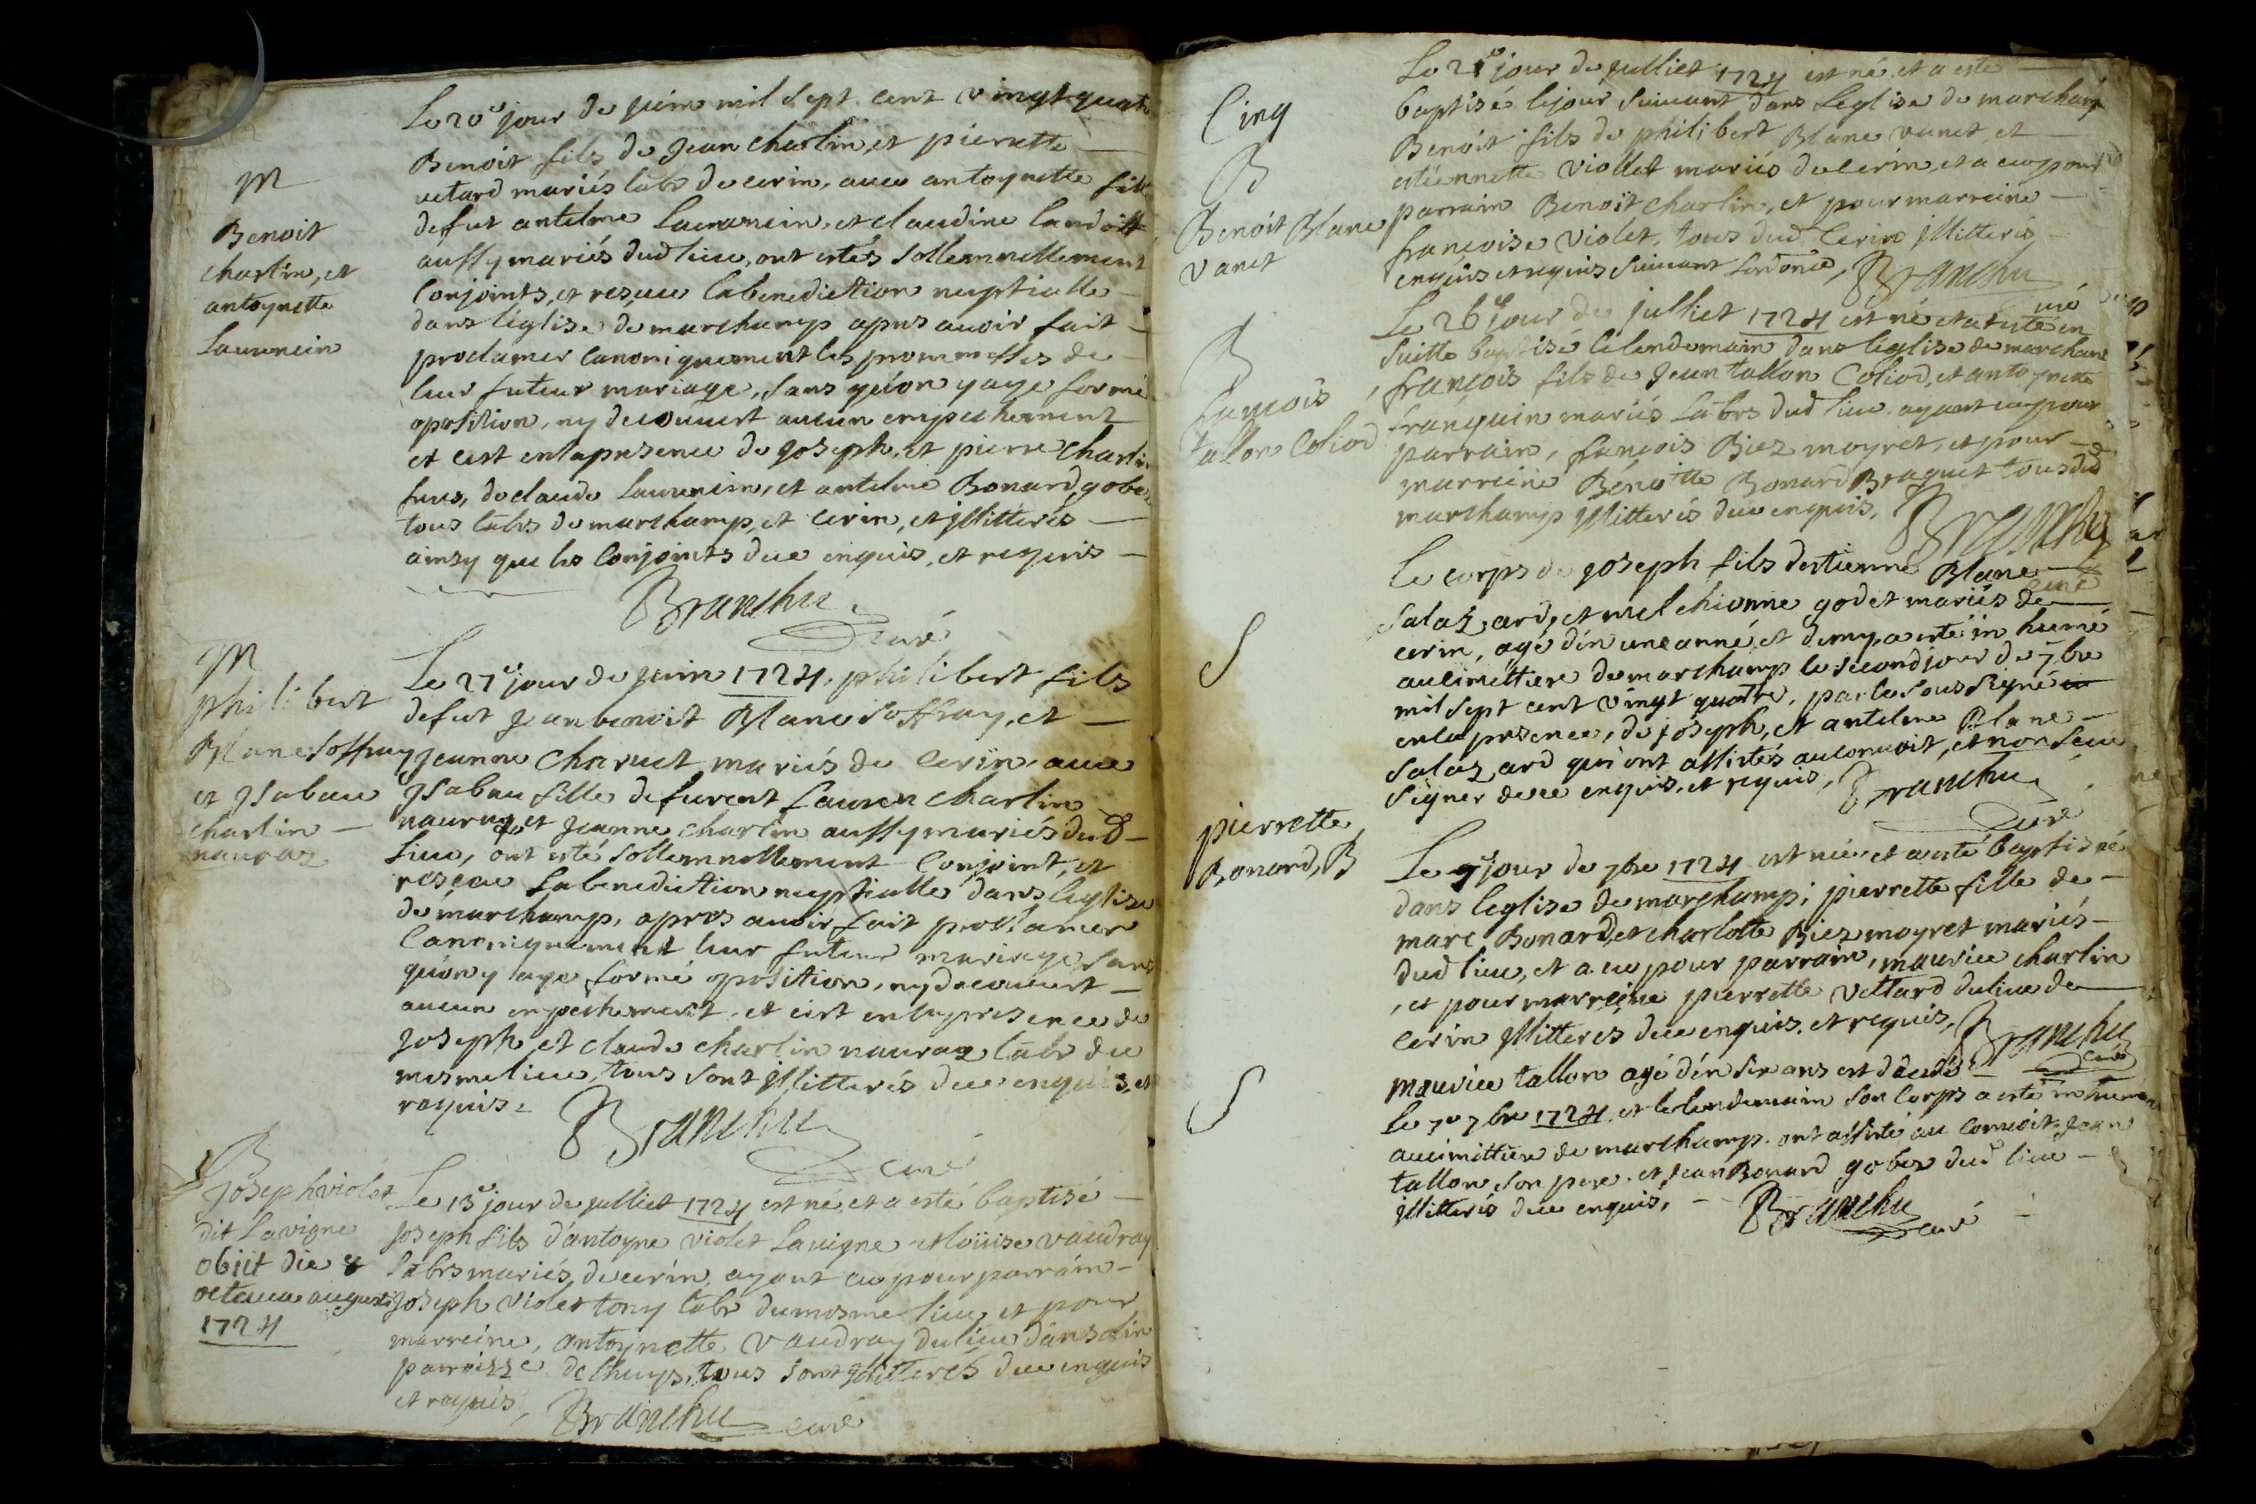 M
Benoit
charlin, et
antoynette
Laurencin
Le 20e jour de juin mil sept cent vingt quatre
Benoit fils de Jean charlin, et pierrette
vetard mariés labrs de cerin, avec antoynette fille
defut antelme Laurencin, et claudine
aussy mariés dud lieu, ont estés sollemnellement
Conjoints, et reseue la benediction nuptialle
dans léglise de marchamp apres avoir fait
proclamer canoniquement les prommesses de
leur futeur mariage, sans qu'on y aye formé
oposition, ny decouvert aucun empechement
et cest en la presence de Joseph, et pierre charlin
freres, de claude Laurencin, et antelme Bonard gobe
tous labrs de marchamp, et cerin, et Jllitterés
ainsy que les Conjoints de ce enquis, et requis
Branchu
curé
M
philibert
Blanc Soffray
et Jsabeau
charlin
nauraz
Le 27e jour de juin 1724, philibert fils
defut Jean benoit Blanc Soffray, et
Jeanne Charvet mariés de Cerin, avec
Jsabeau fille defurent Laurent charlin
nauraz et Jeanne charlin aussy mariés dud
Lieu, ont esté sollemnellement Conjoint, et
reseue La benediction nuptialle dans l'eglise
de marchamp, apres avoir fait proclamer
Canoniquement leur futeur mariage sans
qu'on y aye formé oposition, ny decouvert
aucun empechement, et c'est en la presence de
Joseph et claude charlin nauraz labr du
mesme lieu, tous sont Jllitterés de ce enquis, et
requis.
Branchu
curé
B
Joseph violet
dit Lavigne
obiit die
octava augusti
1724
Le 13e jour de julliet 1724 est né, et a esté baptisé
Joseph fils d'antoyne violet Lavigne et loüise vaudray
Labrs mariés, de cerin, ayant eu pour parrain
Joseph violet tony labr du mesme lieu, et pour
marreine, antoynette vaudray du lieu d'ansolin
parroisse de lhuys, tous sont Jllitterés de ce enquis
et requis,
Branchu curé
Cinq
B
Benoit Blanc
vanet
Le 21e jour de julliet 1724 est né et a esté
baptisé le jour suivant dans Leglise de marchamp
Benoit fils de philibert Blanc vanet et
estiennette Viollet mariés de cerin, et a eu pour
parrain Benoit charlin, et pour marreine
francoise violet, tous dud Cerin Jllitterés
enquis et requis suivant Lordonce, Branchu
curé
B
francois
tallon Coliod
Le 26e jour de julliet 1724 est né et a esté en
suitte baptisé le lendemain dans l'eglise de marchamp
françois fils de Jean tallon Coliod, et antoynette
franquin mariés Labrs dud lieu ayant eu pour
parrain, francois Biez moyret, et pour
marreine Benoitte Bonard Braguet tous dud
marchamp Jllitterés de ce enquis,
Branchu
curé
S
Le corps de Joseph fils d'estienne Blanc
Salazard, et melchionne godet mariés de
cerin, agé d'en une anné, et demy a esté in humé
au cimettiere de marchamp le second jour de 7bre
mil sept cent vingt quatre, par le sous signé
en la presence, de joseph, et antelme Blanc
Salazard qui ont assistés au convoit, et non sceu
signer de ce enquis, et requis, Branchu
curé
pierrette
Bonard, B
Le jour de 7bre 1724 est née et a esté baptisée
dans leglise de marchamp; pierrette fille de
marc Bonard, et charlotte Biez moyret mariés
dud lieu, et a eu pour parrain, maurice charlin
, et pour marreine pierrette vettard du lieu de
cerin Jllitterés de ce enquis, et requis, Branchu
curé
S
maurice tallon agé d'en six ans est decedé
Le 7e 7bre 1724 et le lendemain son corps a esté inhumé
au cimettiere de marchamp. ont assisté au convoit Jean
tallon son pere, et Jean Bonard gobez dud lieu
Jllitterés de ce enquis,
Branchu
curé